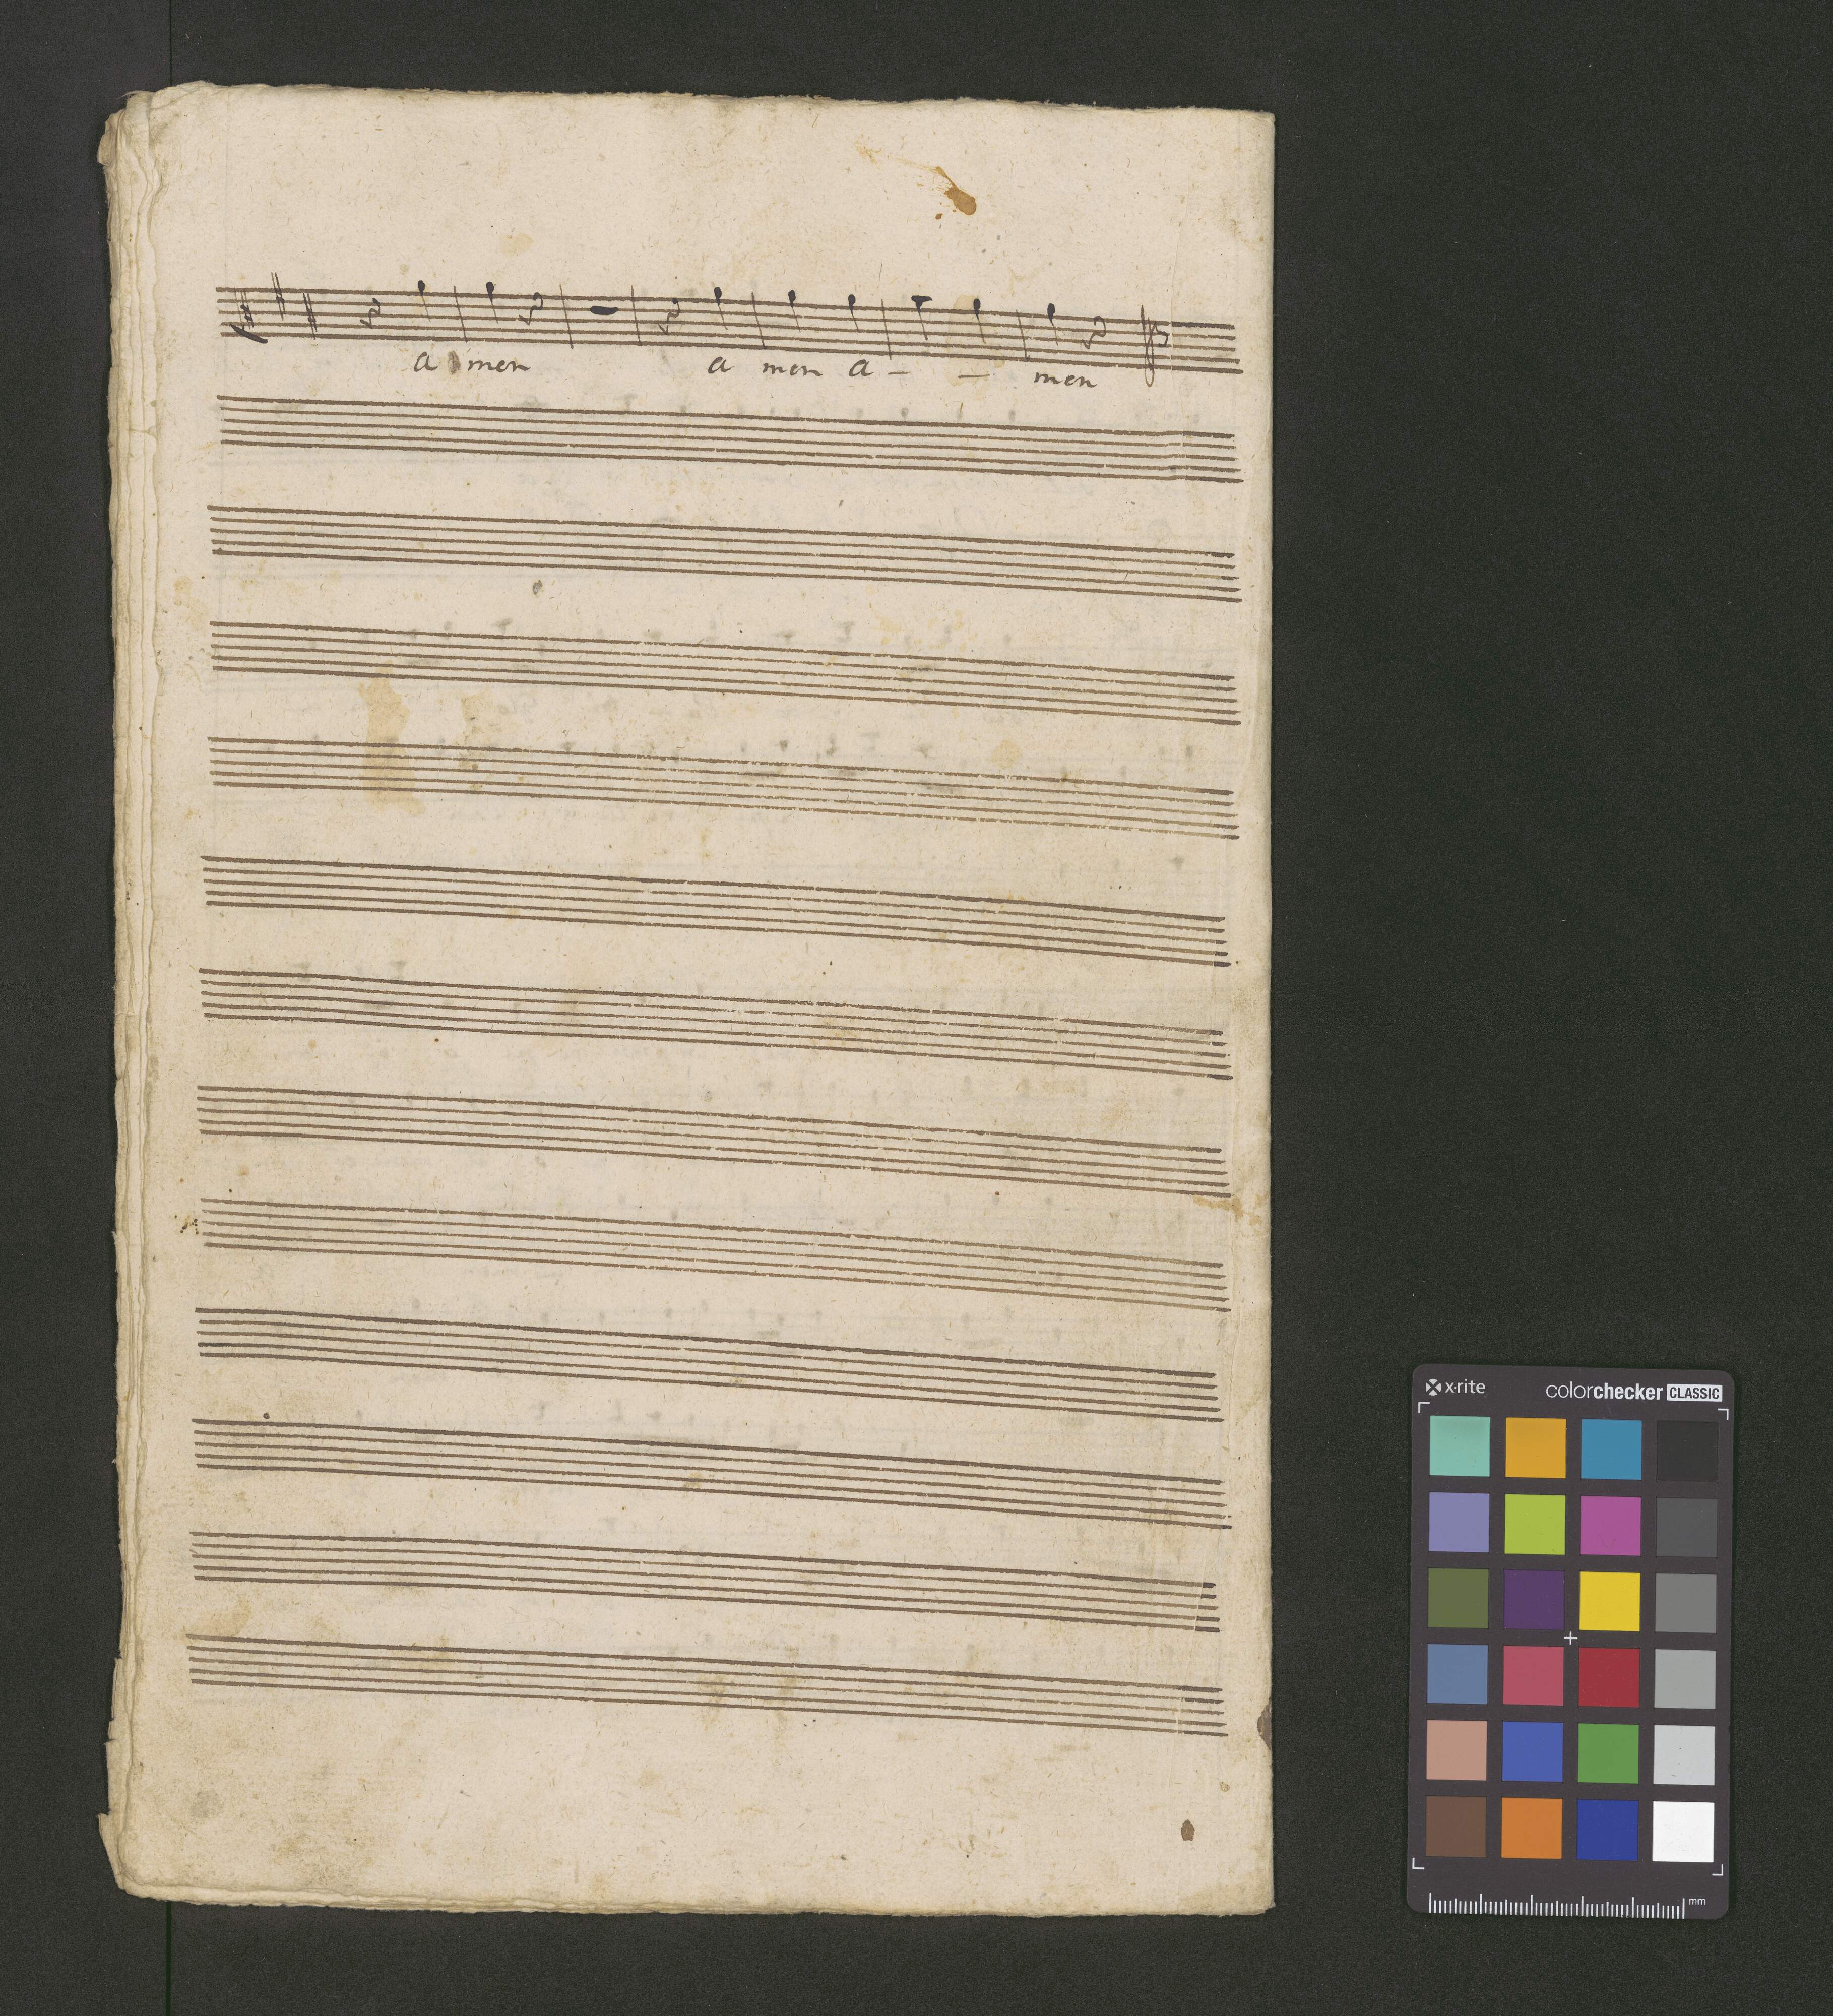 a men a men a - - men
x-rite colorchecker CLASSIC
mm